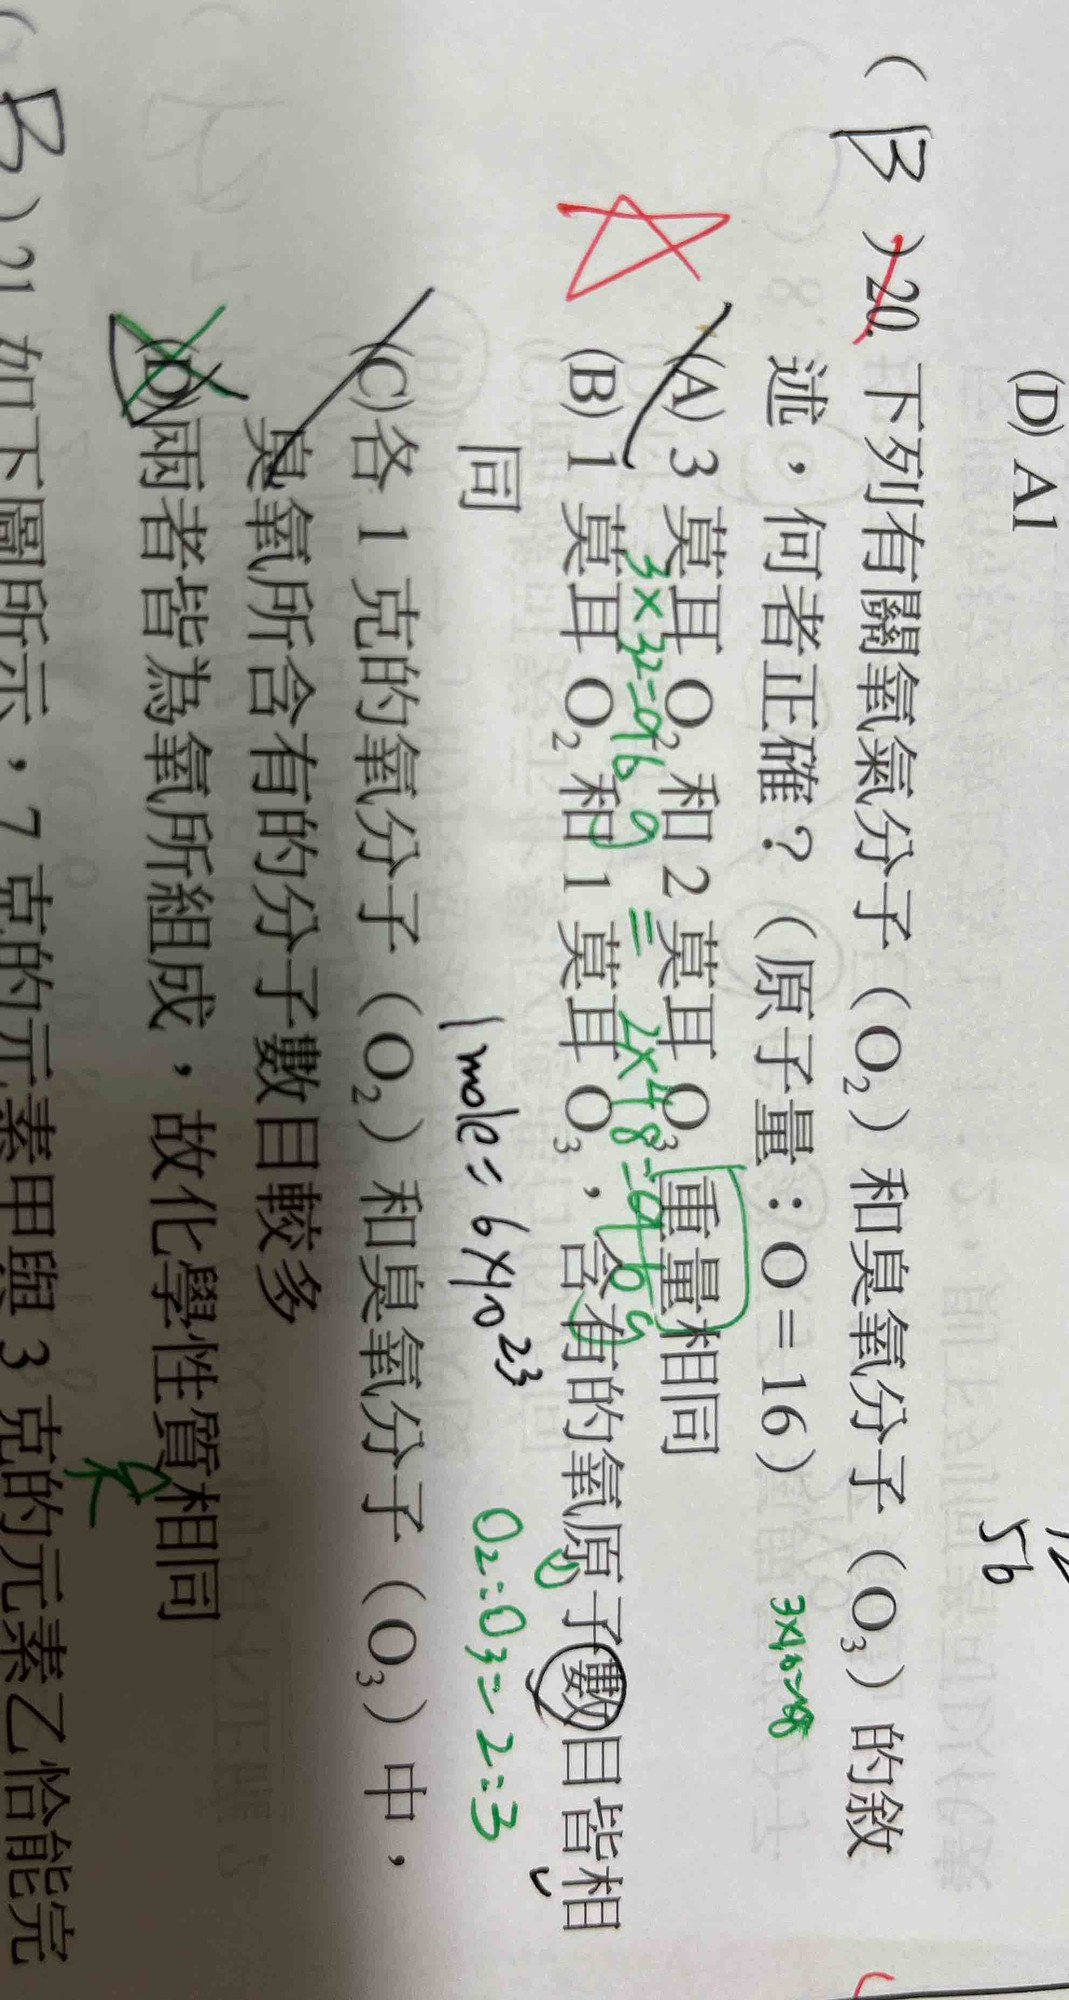 (D) Al
56
( B ) 20. 下列有關氧氣分子（O₂）和臭氧分子（O₃）的敘
述，何者正確？（原子量：O＝16） 3×16=48
(A) 3 莫耳 O₂ 和 2 莫耳 O₃ 重量相同
3×32=96 g = 2×48=96 g
(B) 1 莫耳 O₂ 和 1 莫耳 O₃，含有的氧原子數目皆相
同
1 mole = 6×10²³
O₂:O₃=2:3
(C) 各 1 克的氧分子（O₂）和臭氧分子（O₃）中，
臭氧所含有的分子數目較多
(D) 兩者皆為氧所組成，故化學性質相同
不
B ) 21. 如下圖所示，7 克的元素甲與 3 克的元素乙恰能完